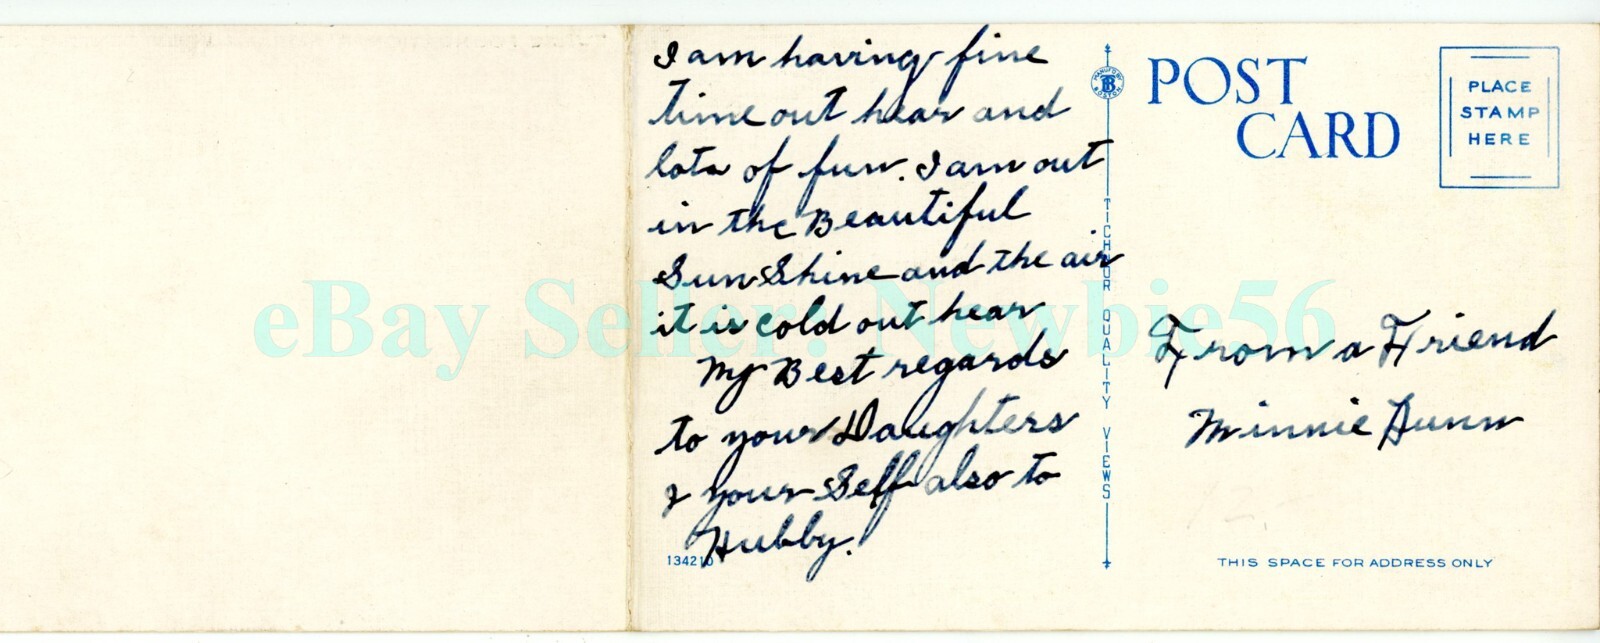 I am having fine
time out hear and
lots of fun. I am out
in the Beautiful
SunShine and the air
it is cold out hear
My Best regards
to your Daughters
& your Self also to
Hubby.
134210
MANUF. BY
TB
BOSTON
TICHNOR QUALITY VIEWS
POST
CARD
PLACE
STAMP
HERE
From a Friend
Minnie Dunn
THIS SPACE FOR ADDRESS ONLY
eBay Seller: Newbie56